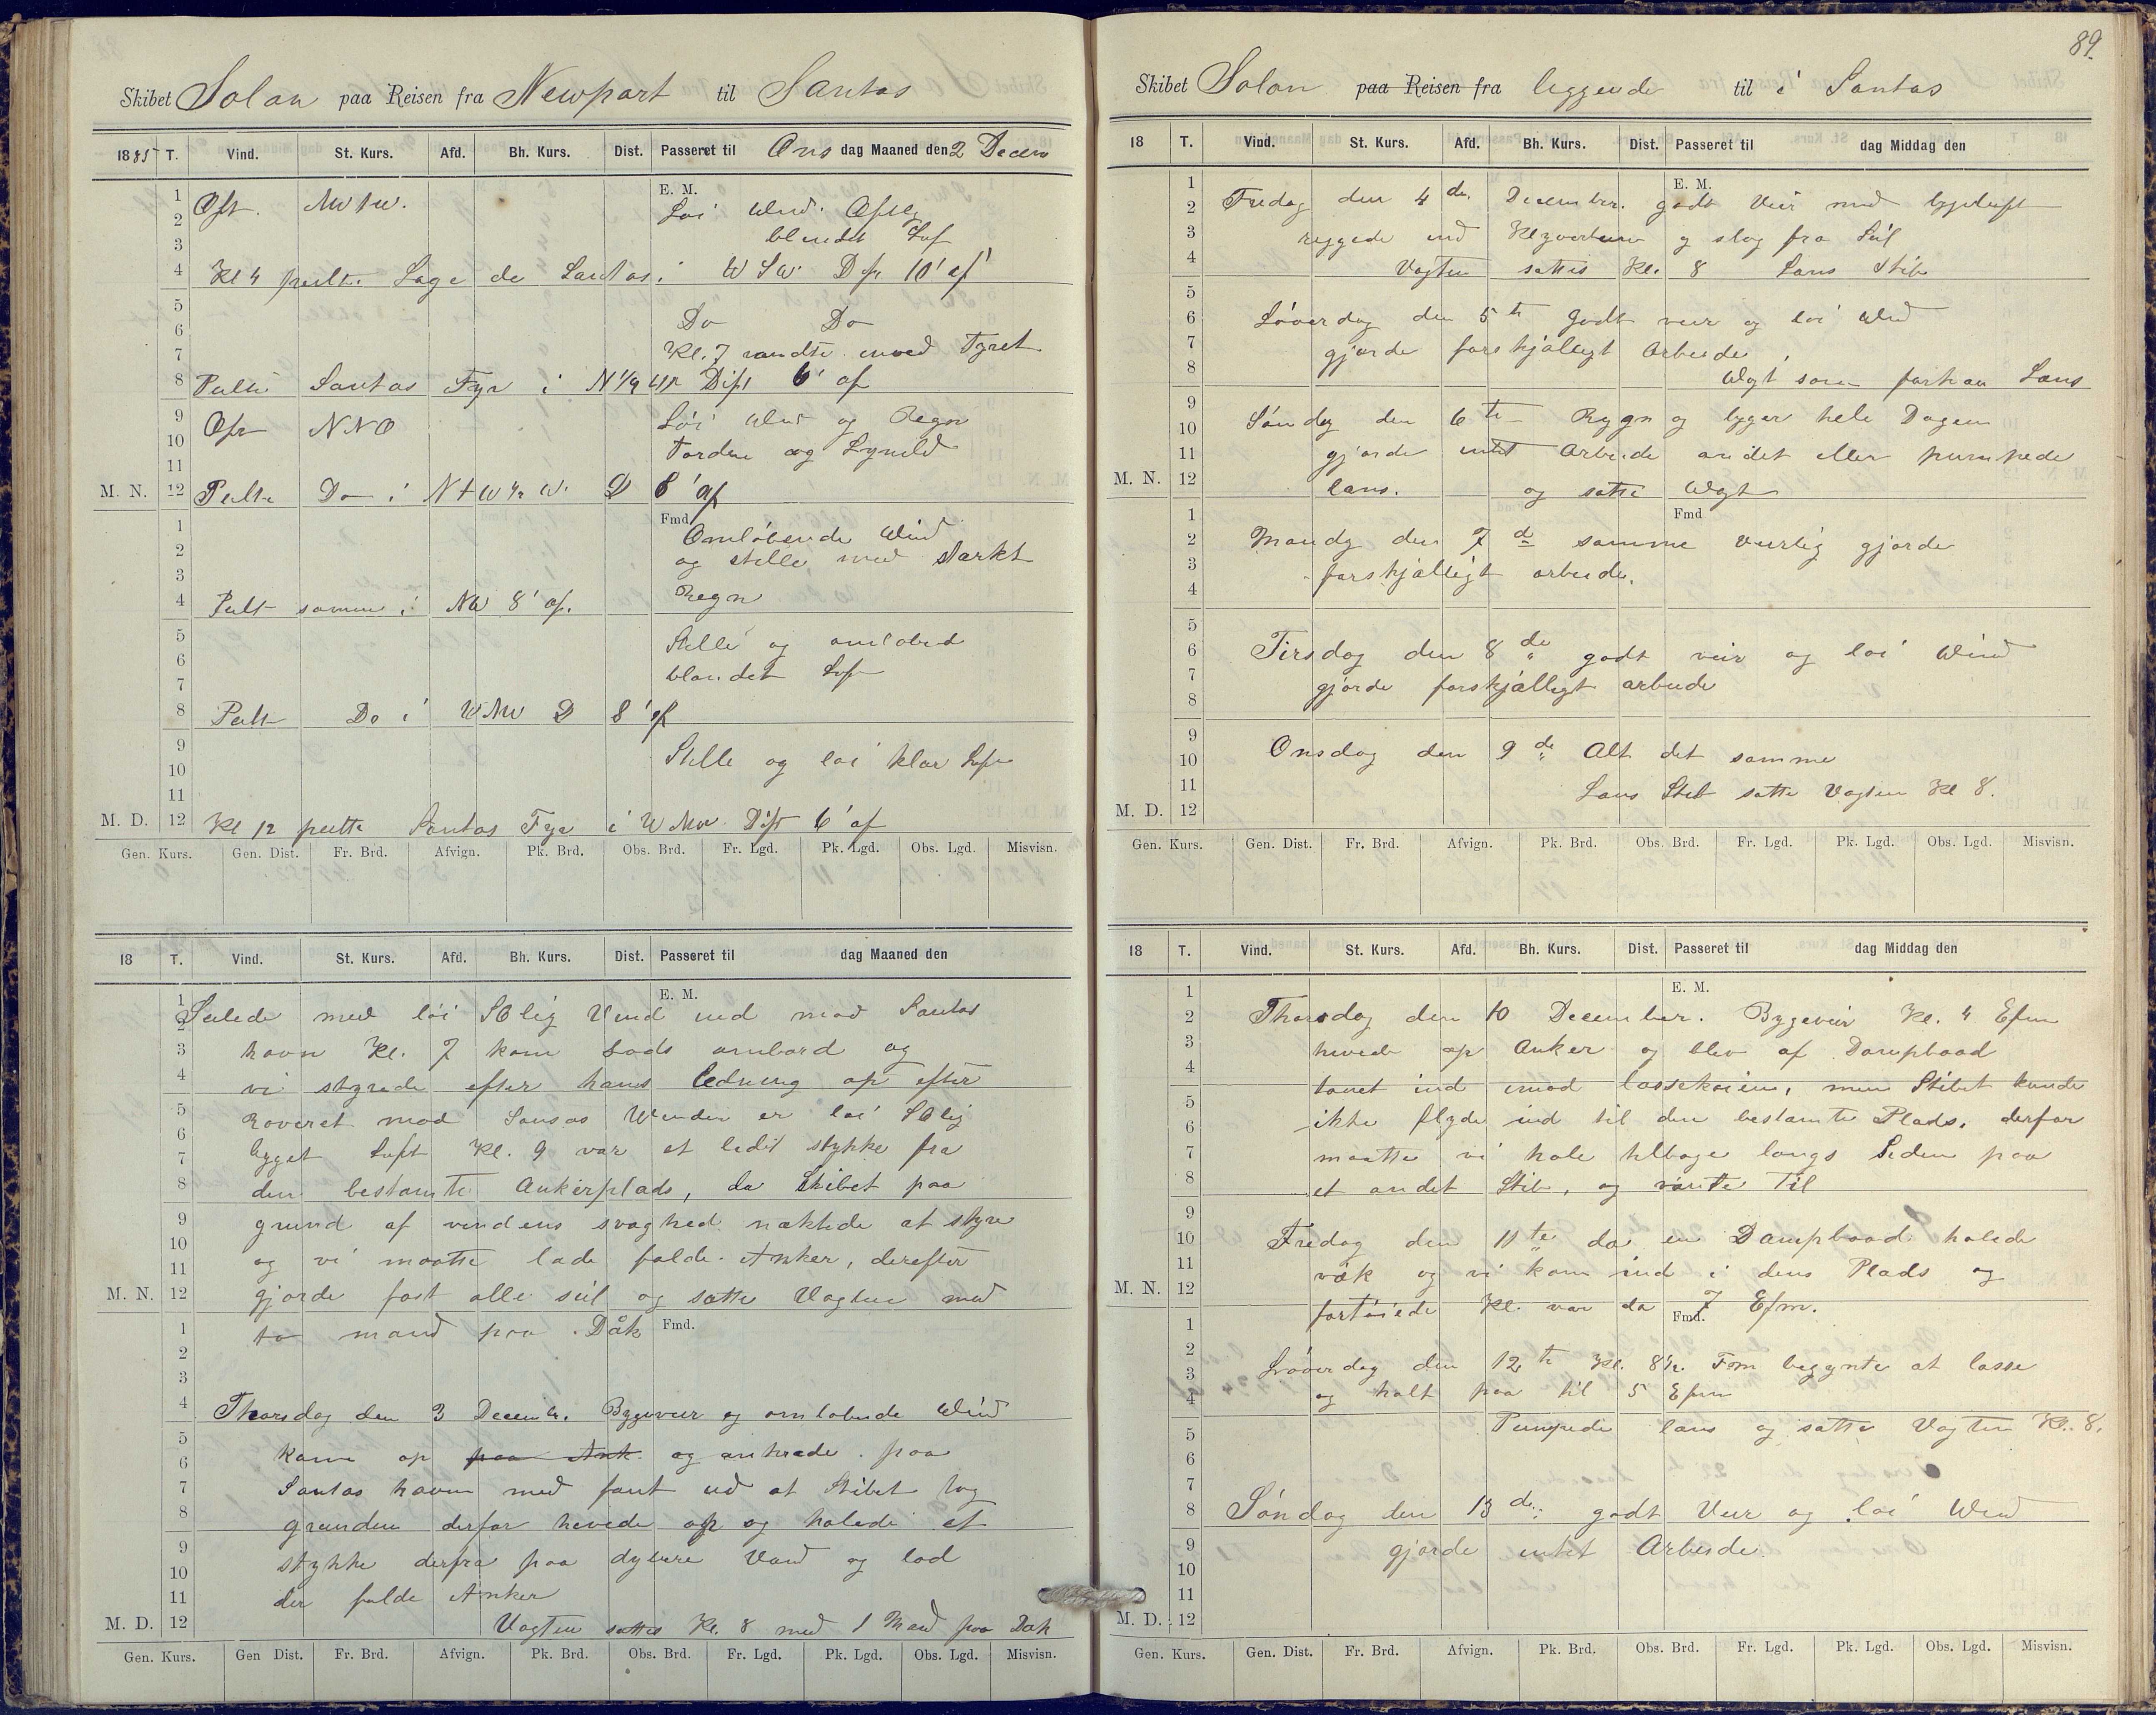 Skibet Solon paa Reisen fra Newport til Santos
1885 T. Vind. St. Kurs. Afd. Bh. Kurs. Dist. Passeret til Ons dag Maaned den 2 Decem
E. M.
1 Ost. NWtW. Löi Wind.
2
3 blandet Luf
4 Kl 4 peilt. Lage de Santos i WSW Dist 10' af
5 Do Do
6
7 Kl. 7 vendte mod Fyret
8 Peilte Santos Fyr i N 1/4 Dist 6' af
9 Ost NNO Löi Wind og Regn
10 Torden og Lyneld
11
M. N. 12 Peilte Do i NtW 1/2 W. D 8' af
Fmd
1 Omlöbende Wind
2 og stille med stærkt
3
4 Peilt samme i NW 8' af. Regn
5 Stille og omlobed
6
7 blandet Luf
8 Peilt Do i WNW D 8' af
9 Stille og loi klar Luft
10
11
M. D. 12 Kl 12 peilte Santos Fyr i WNW Dist 6' af
Gen. Kurs. Gen. Dist. Fr. Brd. Afvign. Pk. Brd. Obs. Brd. Fr. Lgd. Pk. Lgd. Obs. Lgd. Misvisn.
18 T. Vind. St. Kurs. Afd. Bh. Kurs. Dist. Passeret til dag Maaned den
E. M.
1 Seilede med löi SOlig Vind ind mod Santos
2
3 havn Kl. 7 kom Lods ombord og
4 vi styrede efter hans Ledning op efter
5 Roveret mod Sansos Winden er loi SOlig
6
7 bygget Luft Kl. 9 var et lidet stykke fra
8 den bestamte Ankerplads, da Skibet paa
9 grund af vindens svaghed naktede at styre
10 og vi maatte lade falde Anker, derefter
11
M. N. 12 gjorde fast alle seil og satte Vagten med
1 to mand paa Dåk Fmd.
2
3
4 Thorsdag den 3 Decemb. Bygeveir og omlobende Wind
5 kom op paa Ank og ankrede paa
6
7 Santos havn med fant ud at Skibet tog
8 grunden derfor hevede op og halede et
9 stykke derfra paa dybere Vand og lod
10
11 der falde Anker
M. D. 12 Vagten sattes Kl. 8 med 1 Mand paa Dak
Gen. Kurs. Gen Dist. Fr. Brd. Afvign. Pk. Brd. Obs. Brd. Fr. Lgd. Pk. Lgd. Obs. Lgd. Misvisn.
89.
Skibet Solon paa Reisen fra liggende til i Santos
18 T. Vind. St. Kurs. Afd. Bh. Kurs. Dist. Passeret til dag Middag den
E. M.
1
2 Fredag den 4 de. December. godt Veir med bygeluft
3 og slog fra Seil
4 Vagten sattes Kl. 8 Lans Skib
5
6 Löverdag den 5 te Godt veir og loi Wind
7 gjorde forskjålligt Arbeide
8 Wagt som forhen Lans
9
10 Söndag den 6 te Rygn og byger hele Dagen
11 gjorde intet Arbeide andet eller pumpede
M. N. 12 lans. og satte Wagt
Fmd
1
2 Mandg den 7 de samme veirlig gjorde
3 forskjålligt arbeide.
4
5
6 Tirsdag den 8 de godt veir og loi Wind
7 gjorde forskjålligt arbeide
8
9
10 Onsdag den 9 de Alt det samme
11 Lans Skib satte Vagten Kl 8.
M. D. 12
Gen. Kurs. Gen. Dist. Fr. Brd. Afvign. Pk. Brd. Obs. Brd. Fr. Lgd. Pk. Lgd. Obs. Lgd. Misvisn.
18 T. Vind. St. Kurs. Afd. Bh. Kurs. Dist. Passeret til dag Middag den
E. M.
1
2 Thorsdag den 10 December. Bygeveir Kl. 4 Efm
3 hevede op Anker og blev af Dampbaad
4 touet ind imod lossekaien, men Skibet kunde
5
6 ikke flyde ind til den bestamte Plads. derfor
7 maatte vi hale tilbage langs Siden paa
8 et andet Skib, og vänte Til
9
10 Fredag den 11 te da en Dampbaad halede
11 våk og vi kom ind i dens Plads og
M. N. 12
1 fortöiede Kl. var da 7 Efm.
Fmd.
2
3 Lövverdag den 12 te Kl. 8 1/2 Fm begynte at losse
4 og halt paa til 5 Efm
5 Pumpede lans og satte Vagten Kl. 8.
6
7
8 Söndag den 13 de. godt Veir og loi Wind
9 gjorde intet Arbeide.
10
11
M. D. 12
Gen. Kurs. Gen. Dist. Fr. Brd. Afvign. Pk. Brd. Obs. Brd. Fr. Lgd. Pk. Lgd. Obs. Lgd. Misvisn.